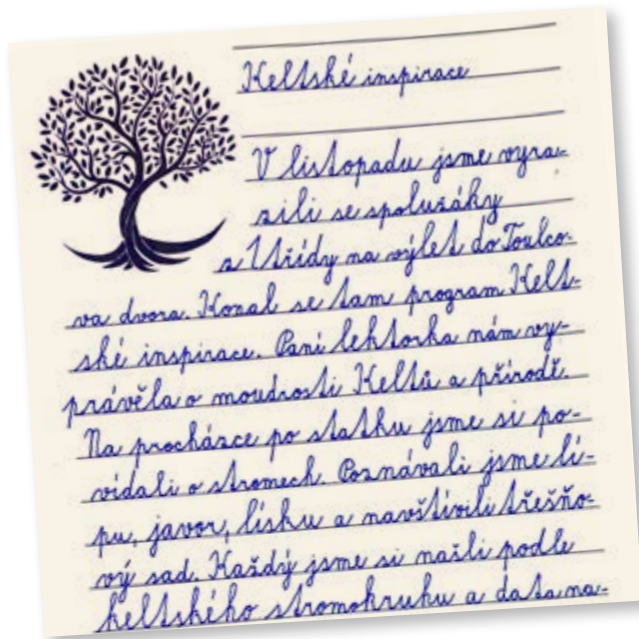 Keltské inspirace
V listopadu jsme vyra-
zili se spolužáky
z 1 třídy na výlet do Toulco-
va dvora. Konal se tam program Kelt-
ské inspirace. Paní lektorka nám vy-
právěla o moudrosti Keltů a přírodě.
Na procházce po statku jsme si po-
vídali o stromech. Poznávali jsme lí-
pu, javor, lísku a navštívili třešňo-
vý sad. Každý jsme si našli podle
keltského stromokruhu a data na-